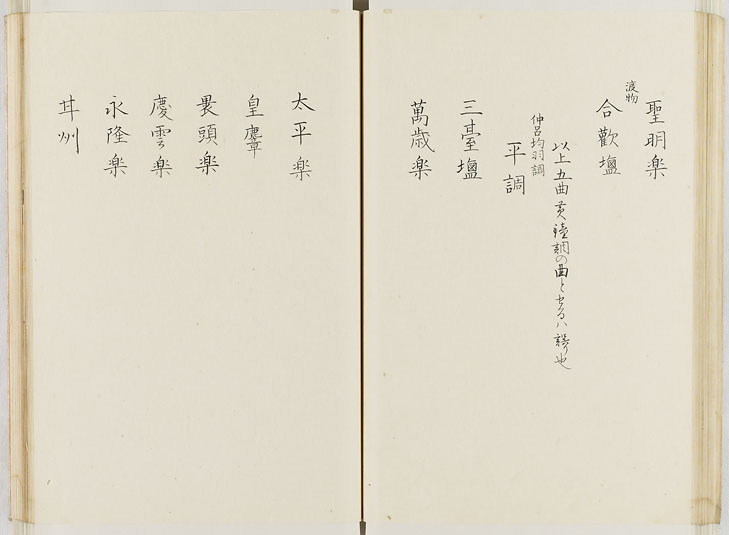 聖明楽
渡物
合歓塩
以上五曲黄鐘調の曲とせるハ誤り也
仲呂均羽調
平調
三臺塩
萬歳楽
太平楽
皇麞
裹頭楽
慶雲楽
永隆楽
甘州